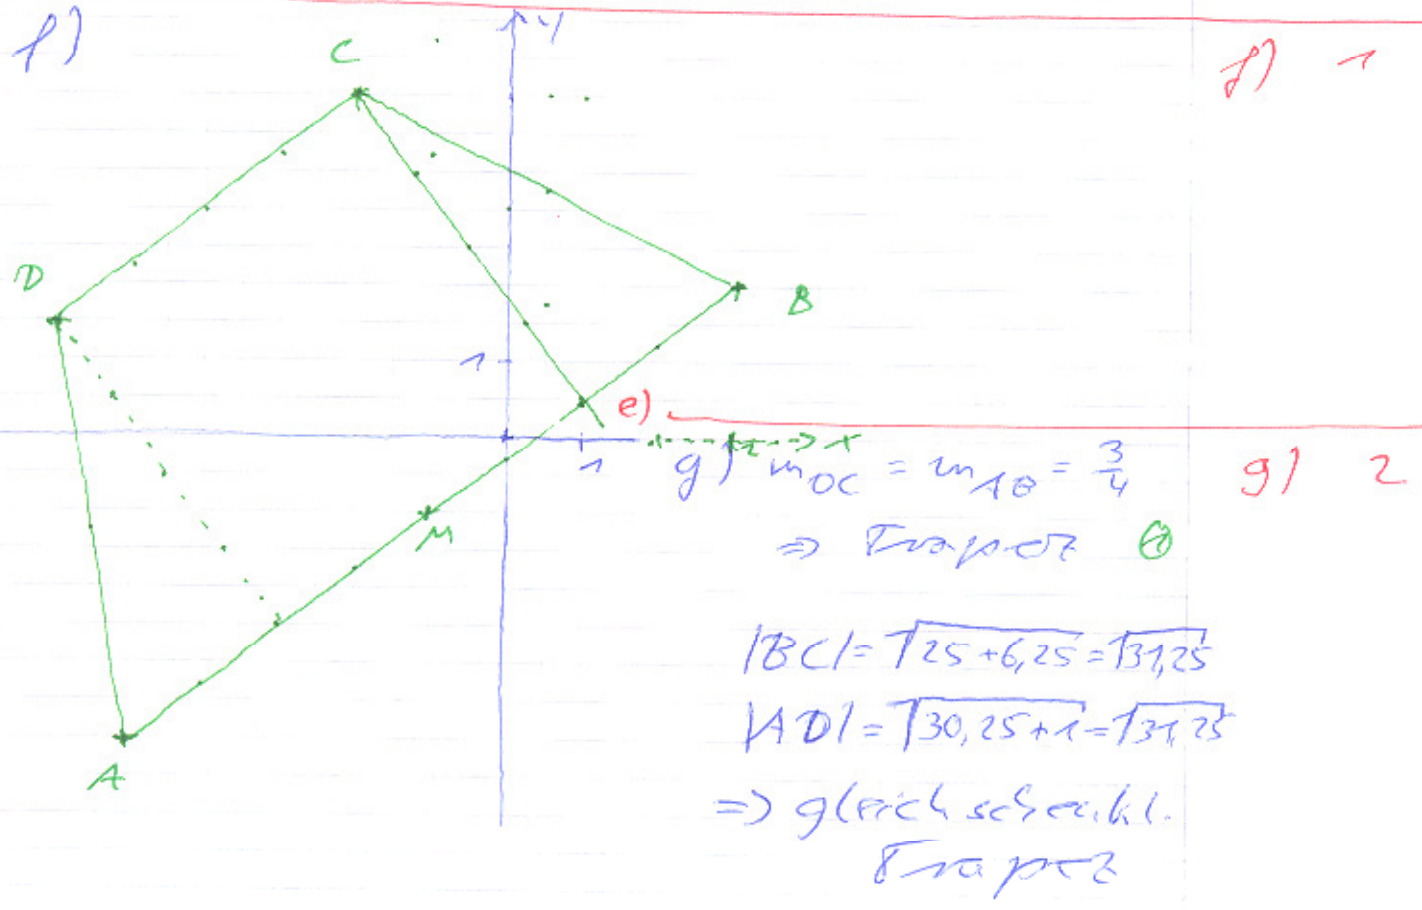 f)
y
f) 1
C
D
B
1
e)
1
x
g) m_DC = m_AB = 3/4
g) 2
M
⇒ Trapez
|BC| = √25+6,25 = √31,25
|AD| = √30,25+1 = √31,25
A
⇒ gleichschenkl.
Trapez